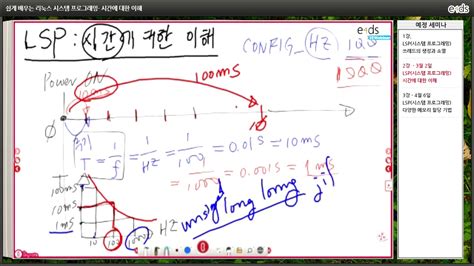 쉽게 배우는 리눅스 시스템 프로그래밍: 시간에 대한 이해
LSP: 시간에 대한 이해
CONFIG_HZ 100
1000
e·ds
Power ON
100ms
0
10
주기
T = 1/f = 1/HZ = 1/100 = 0.01S = 10ms
= 1/1000 = 0.001S = 1ms
100ms
10ms
1ms
10
100
1000
HZ
unsig long long jif
e·ds
예정 세미나
1강.
LSP(시스템 프로그래밍)
쓰레드의 생성과 소멸
2강 - 3월 2일
LSP(시스템 프로그래밍)
시간에 대한 이해
3강 - 4월 6일
LSP(시스템 프로그래밍)
다양한 메모리 할당 기법